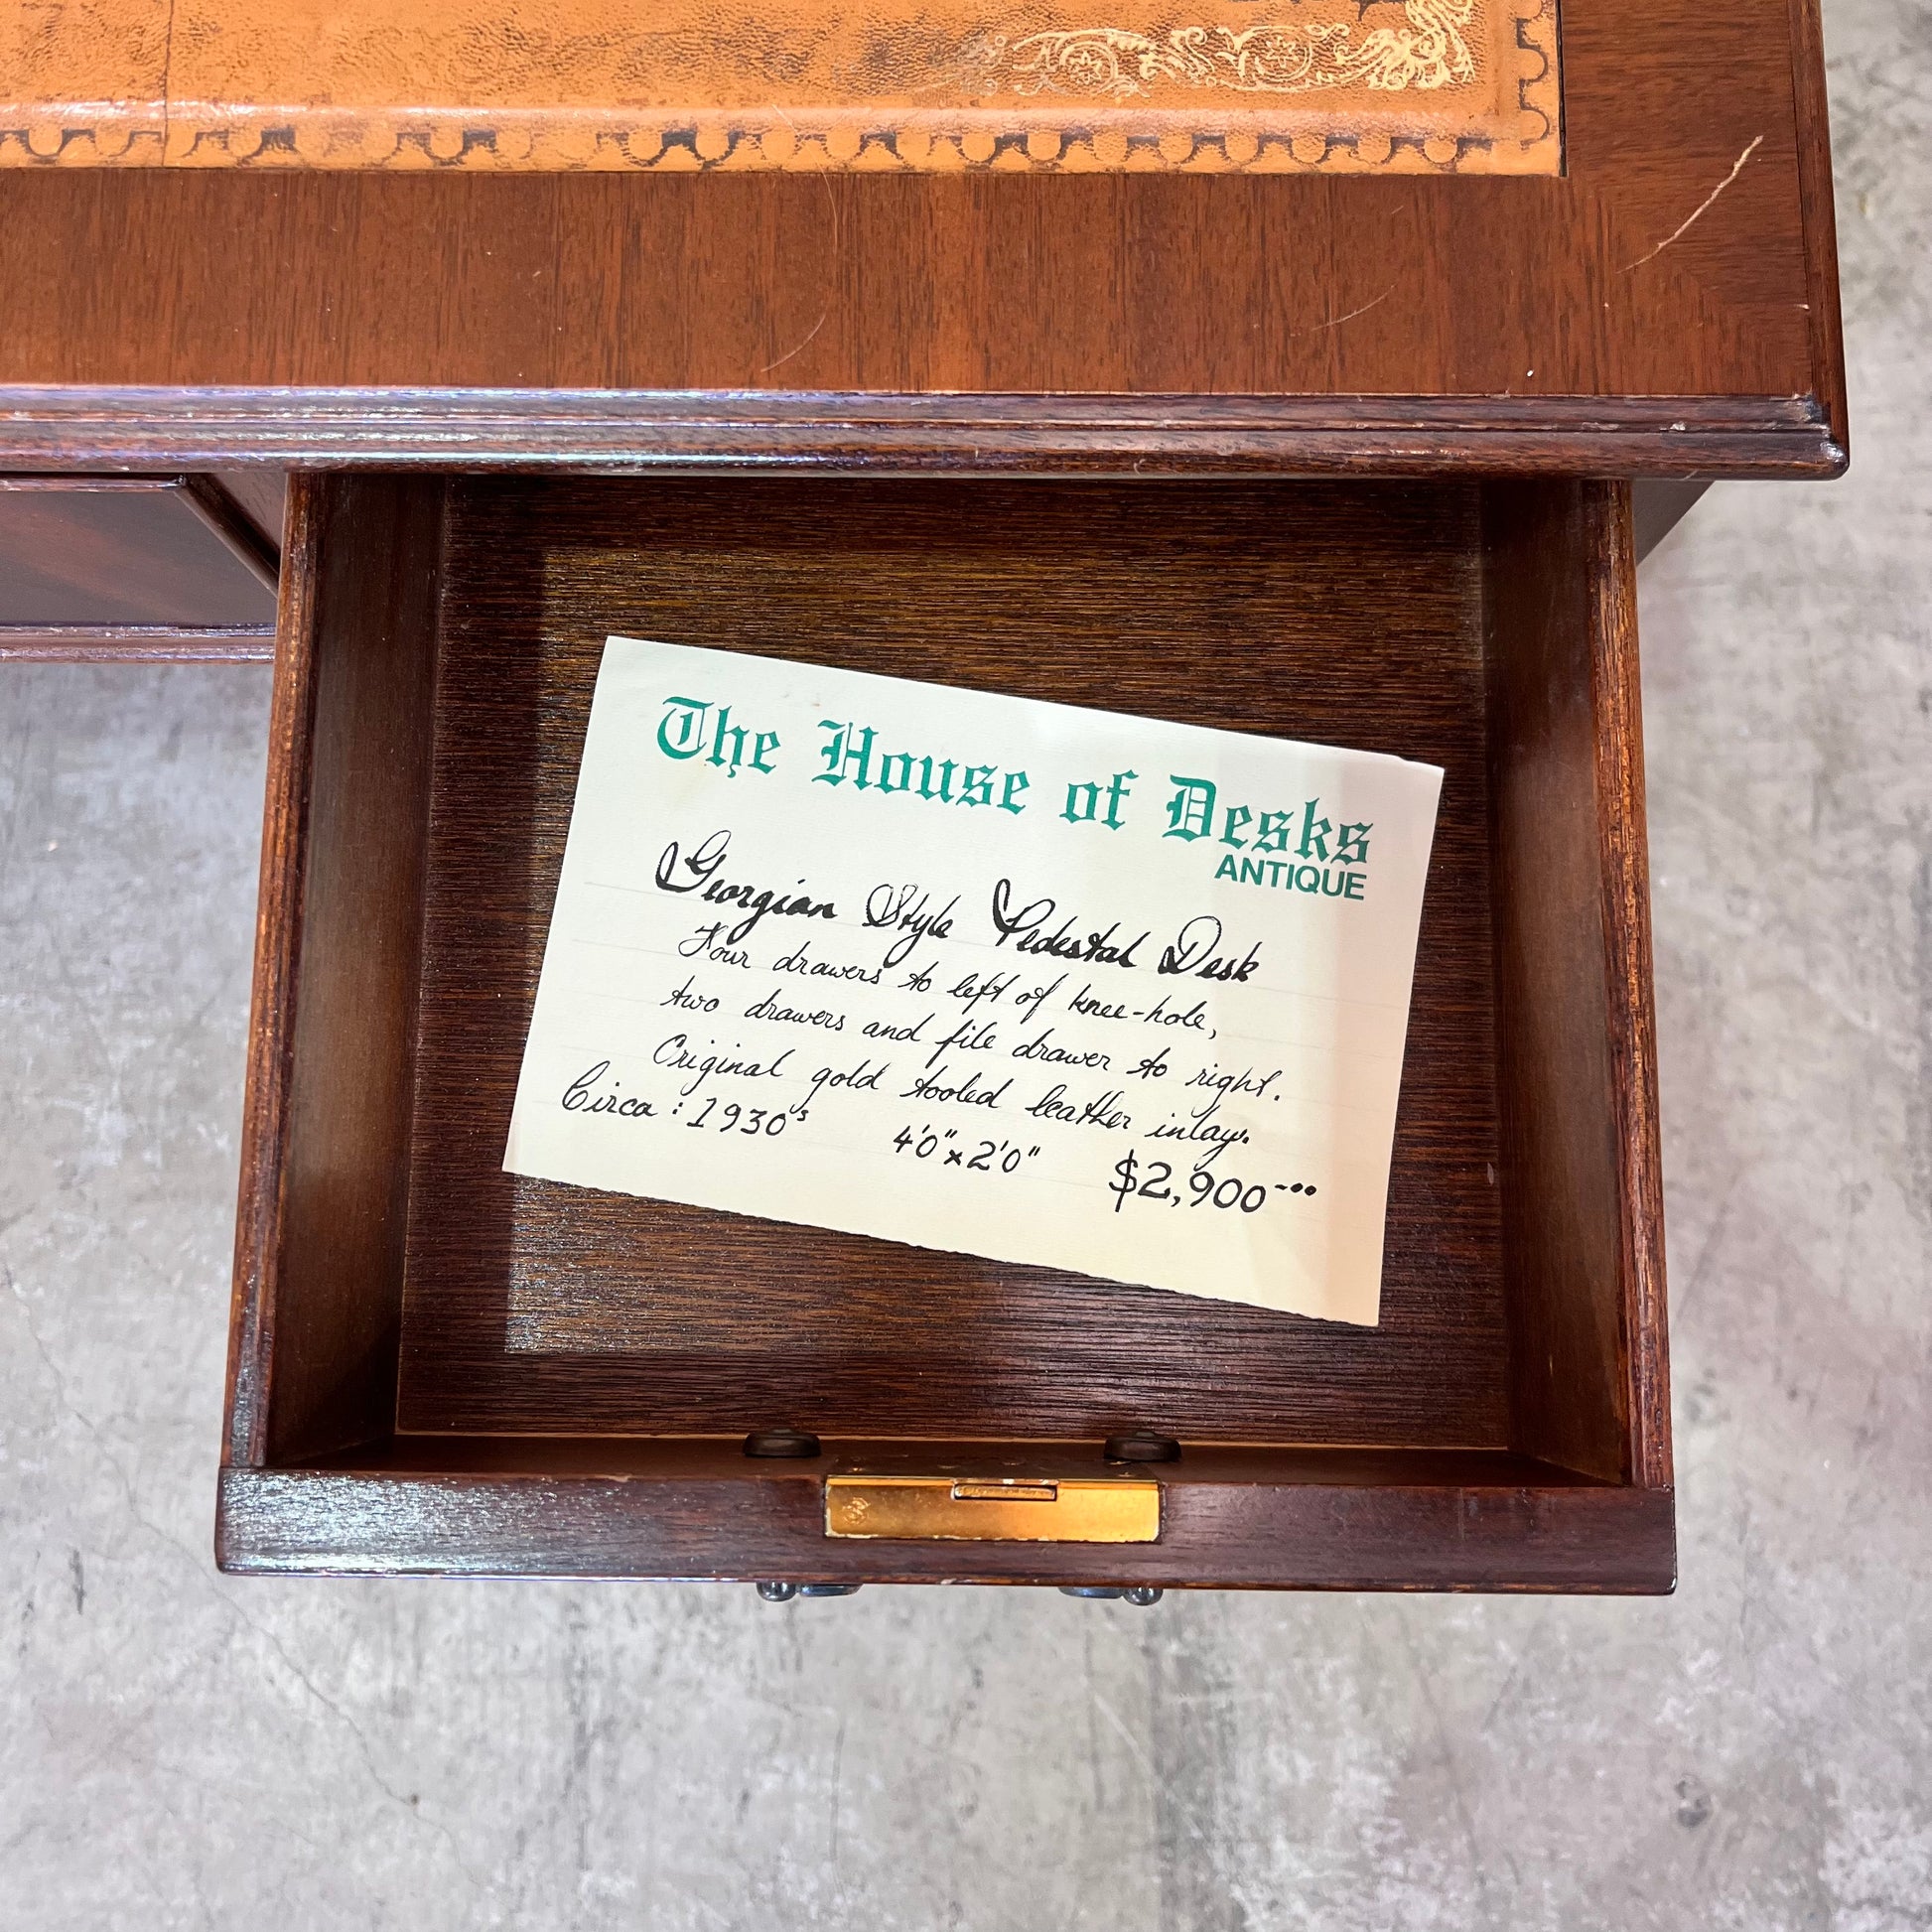 The House of Desks
ANTIQUE
Georgian Style Pedestal Desk
Four drawers to left of knee-hole,
two drawers and file drawer to right.
Original gold tooled leather inlay.
Circa : 1930s 4'0" x 2'0" $2,900-••